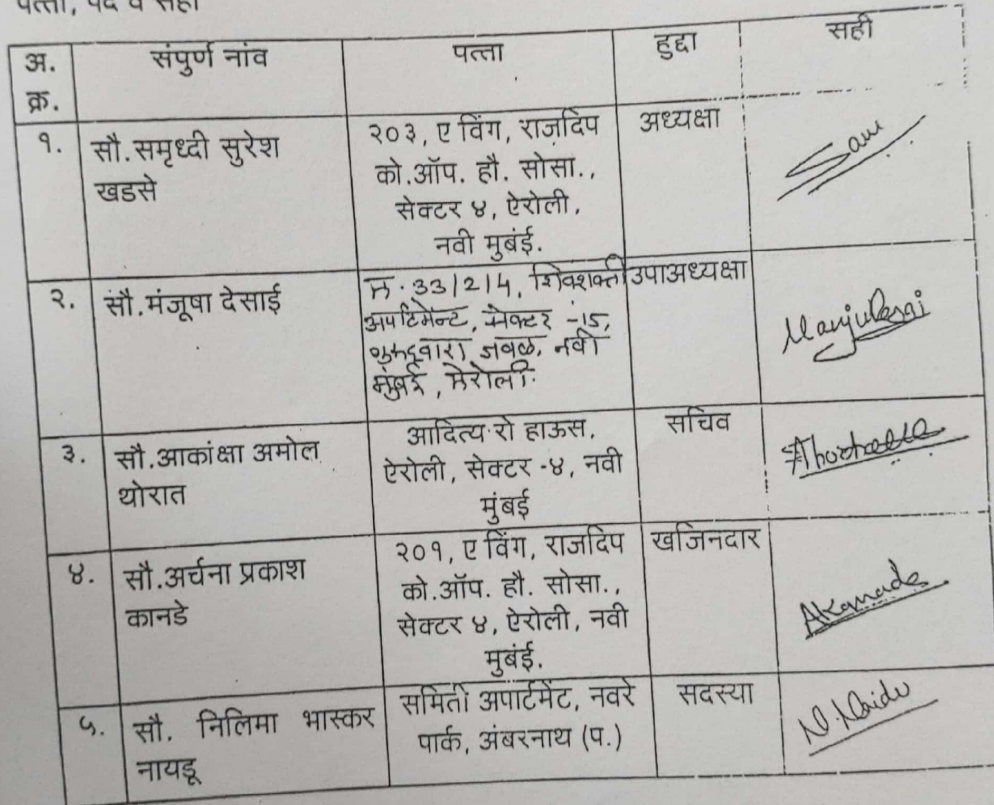 पत्ता, पद व सही
अ. क्र. संपुर्ण नांव पत्ता हुद्दा सही
१. सौ.समृध्दी सुरेश खडसे २०३, ए विंग, राजदिप को.ऑप. हौ. सोसा., सेक्टर ४, ऐरोली, नवी मुबंई. अध्यक्षा
२. सौ.मंजूषा देसाई 33/2/4, शिवशक्ती अपार्टमेन्ट, सेक्टर -15, गुरुद्वारा जवळ, नवी मुंबई, ऐरोली. उपाअध्यक्षा ManjuDesai
३. सौ.आकांक्षा अमोल थोरात आदित्य रो हाऊस, ऐरोली, सेक्टर -४, नवी मुंबई सचिव
४. सौ.अर्चना प्रकाश कानडे २०१, ए विंग, राजदिप को.ऑप. हौ. सोसा., सेक्टर ४, ऐरोली, नवी मुबंई. खजिनदार AKanade
५. सौ. निलिमा भास्कर नायडू समिती अपार्टमेंट, नवरे पार्क, अंबरनाथ (प.) सदस्या N.Naidu